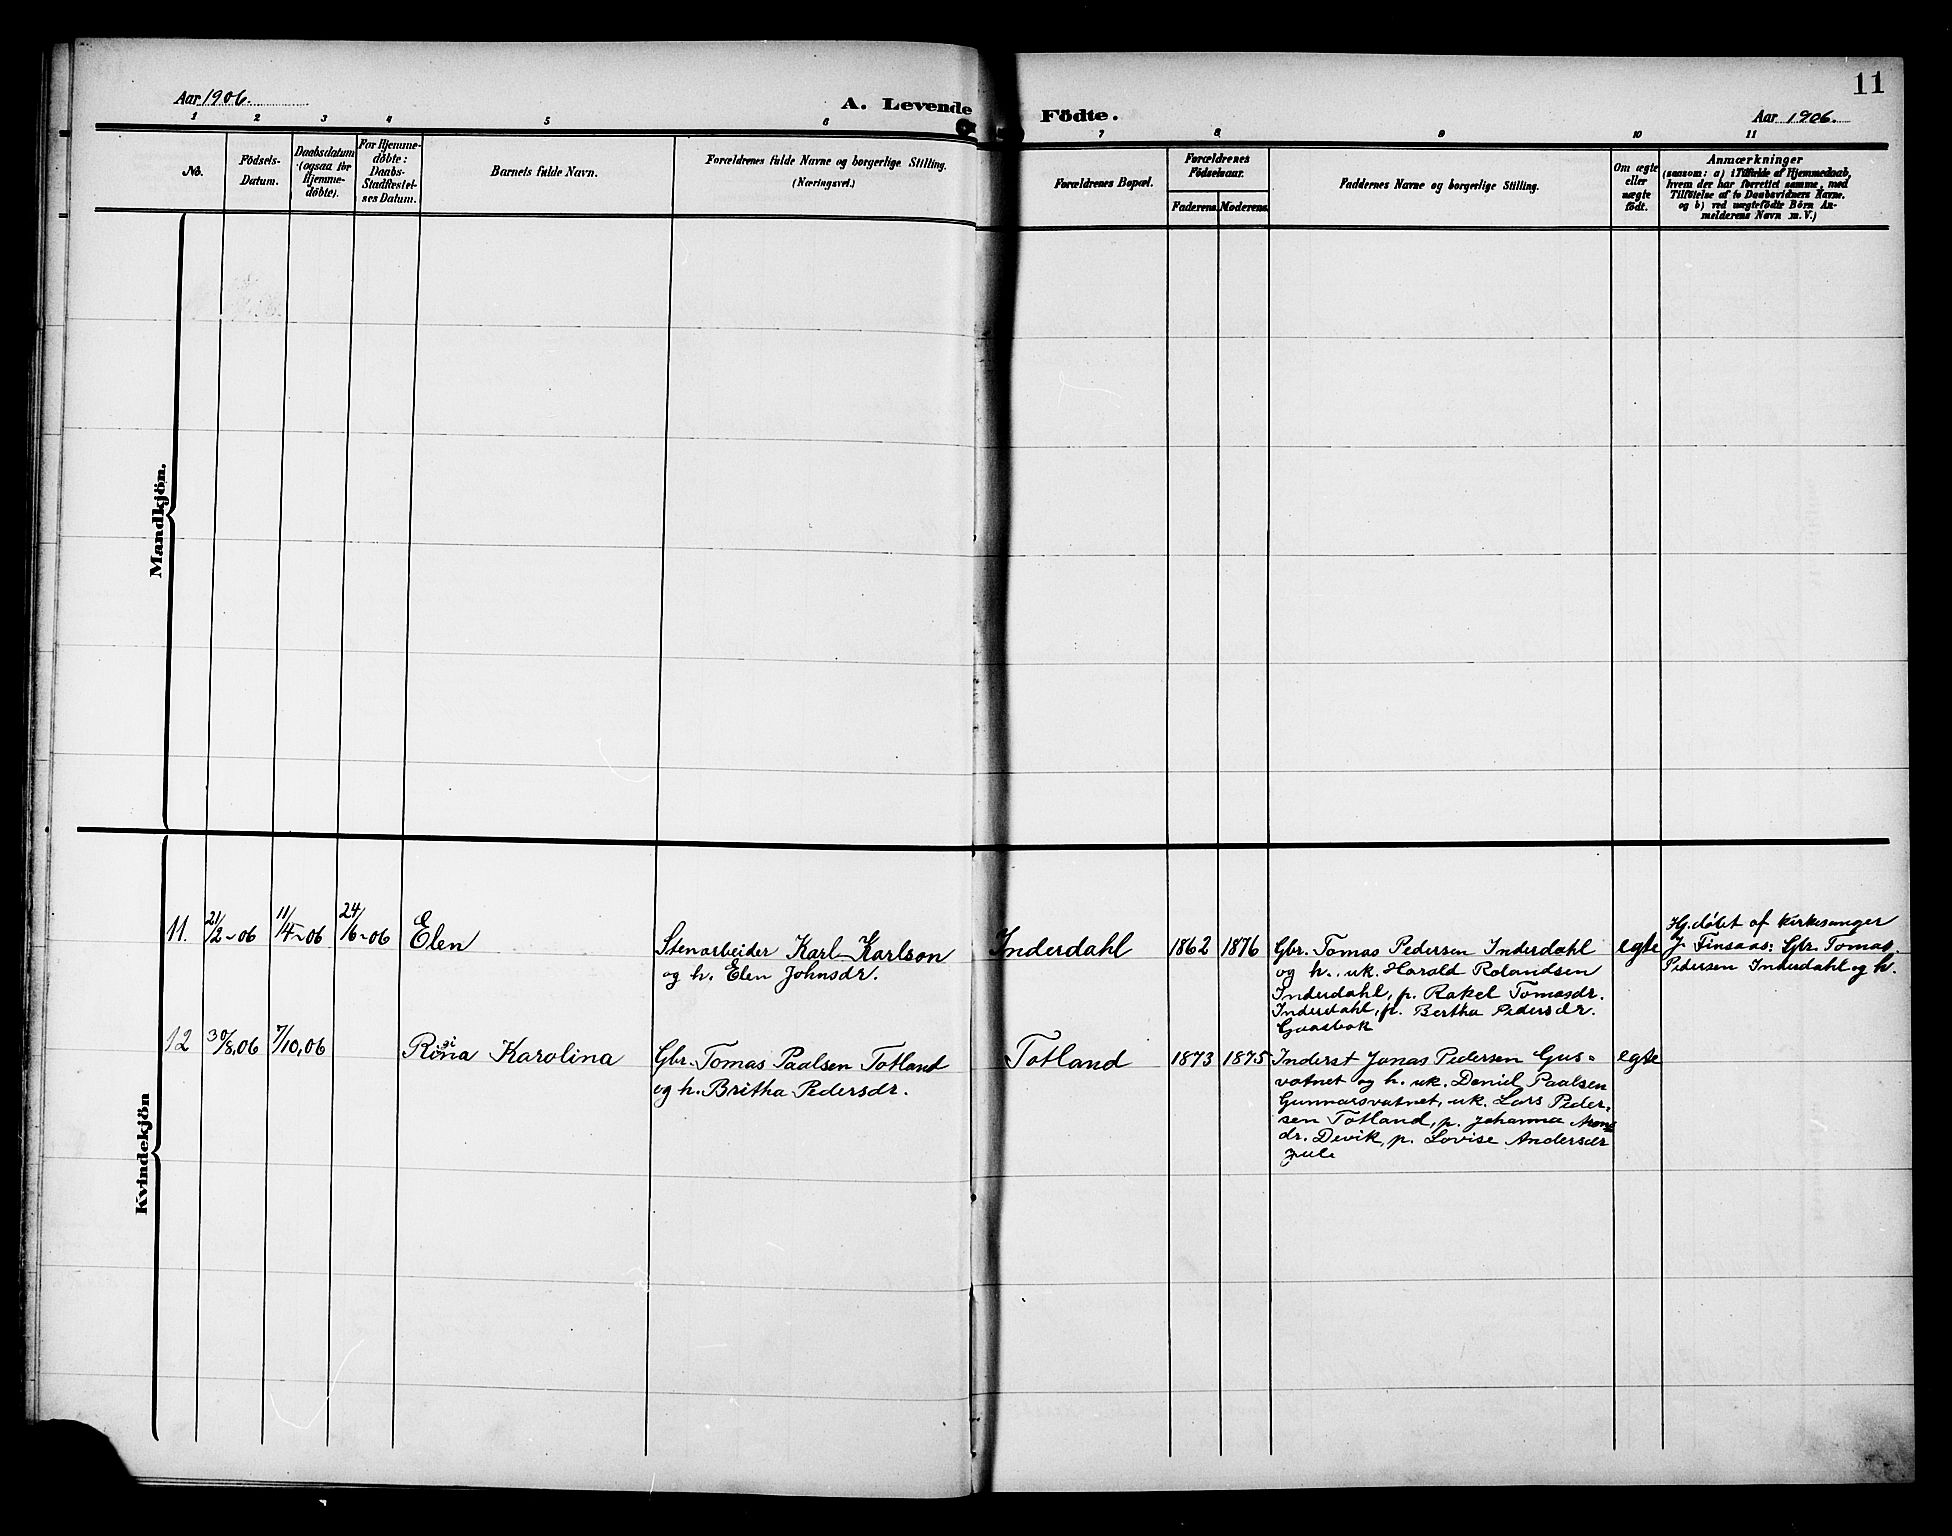 11
Aar 1906.
A. Levende Födte.
Aar 1906.
1 2 3 4 5 6 7 8 9 10 11
No.
Födsels-
Datum.
Daabsdatum
(ogsaa for
Hjemme-
döbte).
For Hjemme-
döbte:
Daabs-
Stadfæstel-
ses Datum.
Barnets fulde Navn.
Forældrenes fulde Navne og borgerlige Stilling.
(Næringsvei.)
Forældrenes Bopæl.
Forældrenes
Födselsaar.
Faderens. Moderens.
Faddernes Navne og borgerlige Stilling.
Om ægte
eller
uægte
födt.
Anmærkninger
(saasom: a) i Tilfælde af Hjemmedaab,
hvem der har forrettet samme, med
Tilföielse af to Daabsvidners Navne.
og b) ved uægtefödte Börn An-
melderens Navn m. V.)
Mandkjön.
Kvindekjön
11. 21/2-06 11/4-06 24/6-06 Elen
Stenarbeider Karl Karlson
og h. Elen Johnsdr.
Inderdahl 1862 1876
Gbr. Tomas Pedersen Inderdahl
og h., uk. Harald Rolandsen
Inderdahl, p. Rakel Tomasdr.
Inderdahl, p. Bertha Pedersdr.
Gaasbak
egte
Hj.døbt af kirkesanger
J. Finsaas: Gbr. Tomas
Pedersen Inderdahl og h.
12 30/8.06 7/10.06 Rina Karolina
Gbr. Tomas Paalsen Totland
og h. Britha Pedersdr.
Totland 1873 1875
Inderst Jonas Pedersen Gus-
vatnet og h. uk. Daniel Paalsen
Gunnarsvatnet, uk. Lars Peder-
sen Totland, p. Johanna
dr. Devik, p. Lovise Andersdr